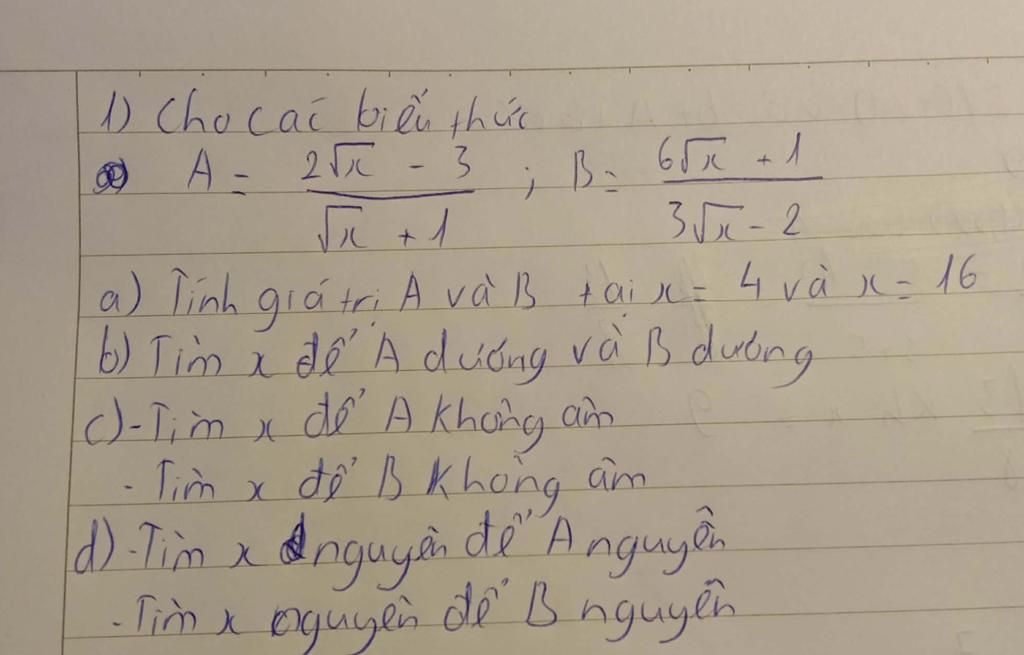 1) Cho các biểu thức
A = (2√x - 3)/(√x + 1) ; B = (6√x + 1)/(3√x - 2)
a) Tính giá trị A và B tại x = 4 và x = 16
b) Tìm x để A dương và B dương
c) - Tìm x để A không âm
- Tìm x để B không âm
d) - Tìm x nguyên để A nguyên
- Tìm x nguyên để B nguyên